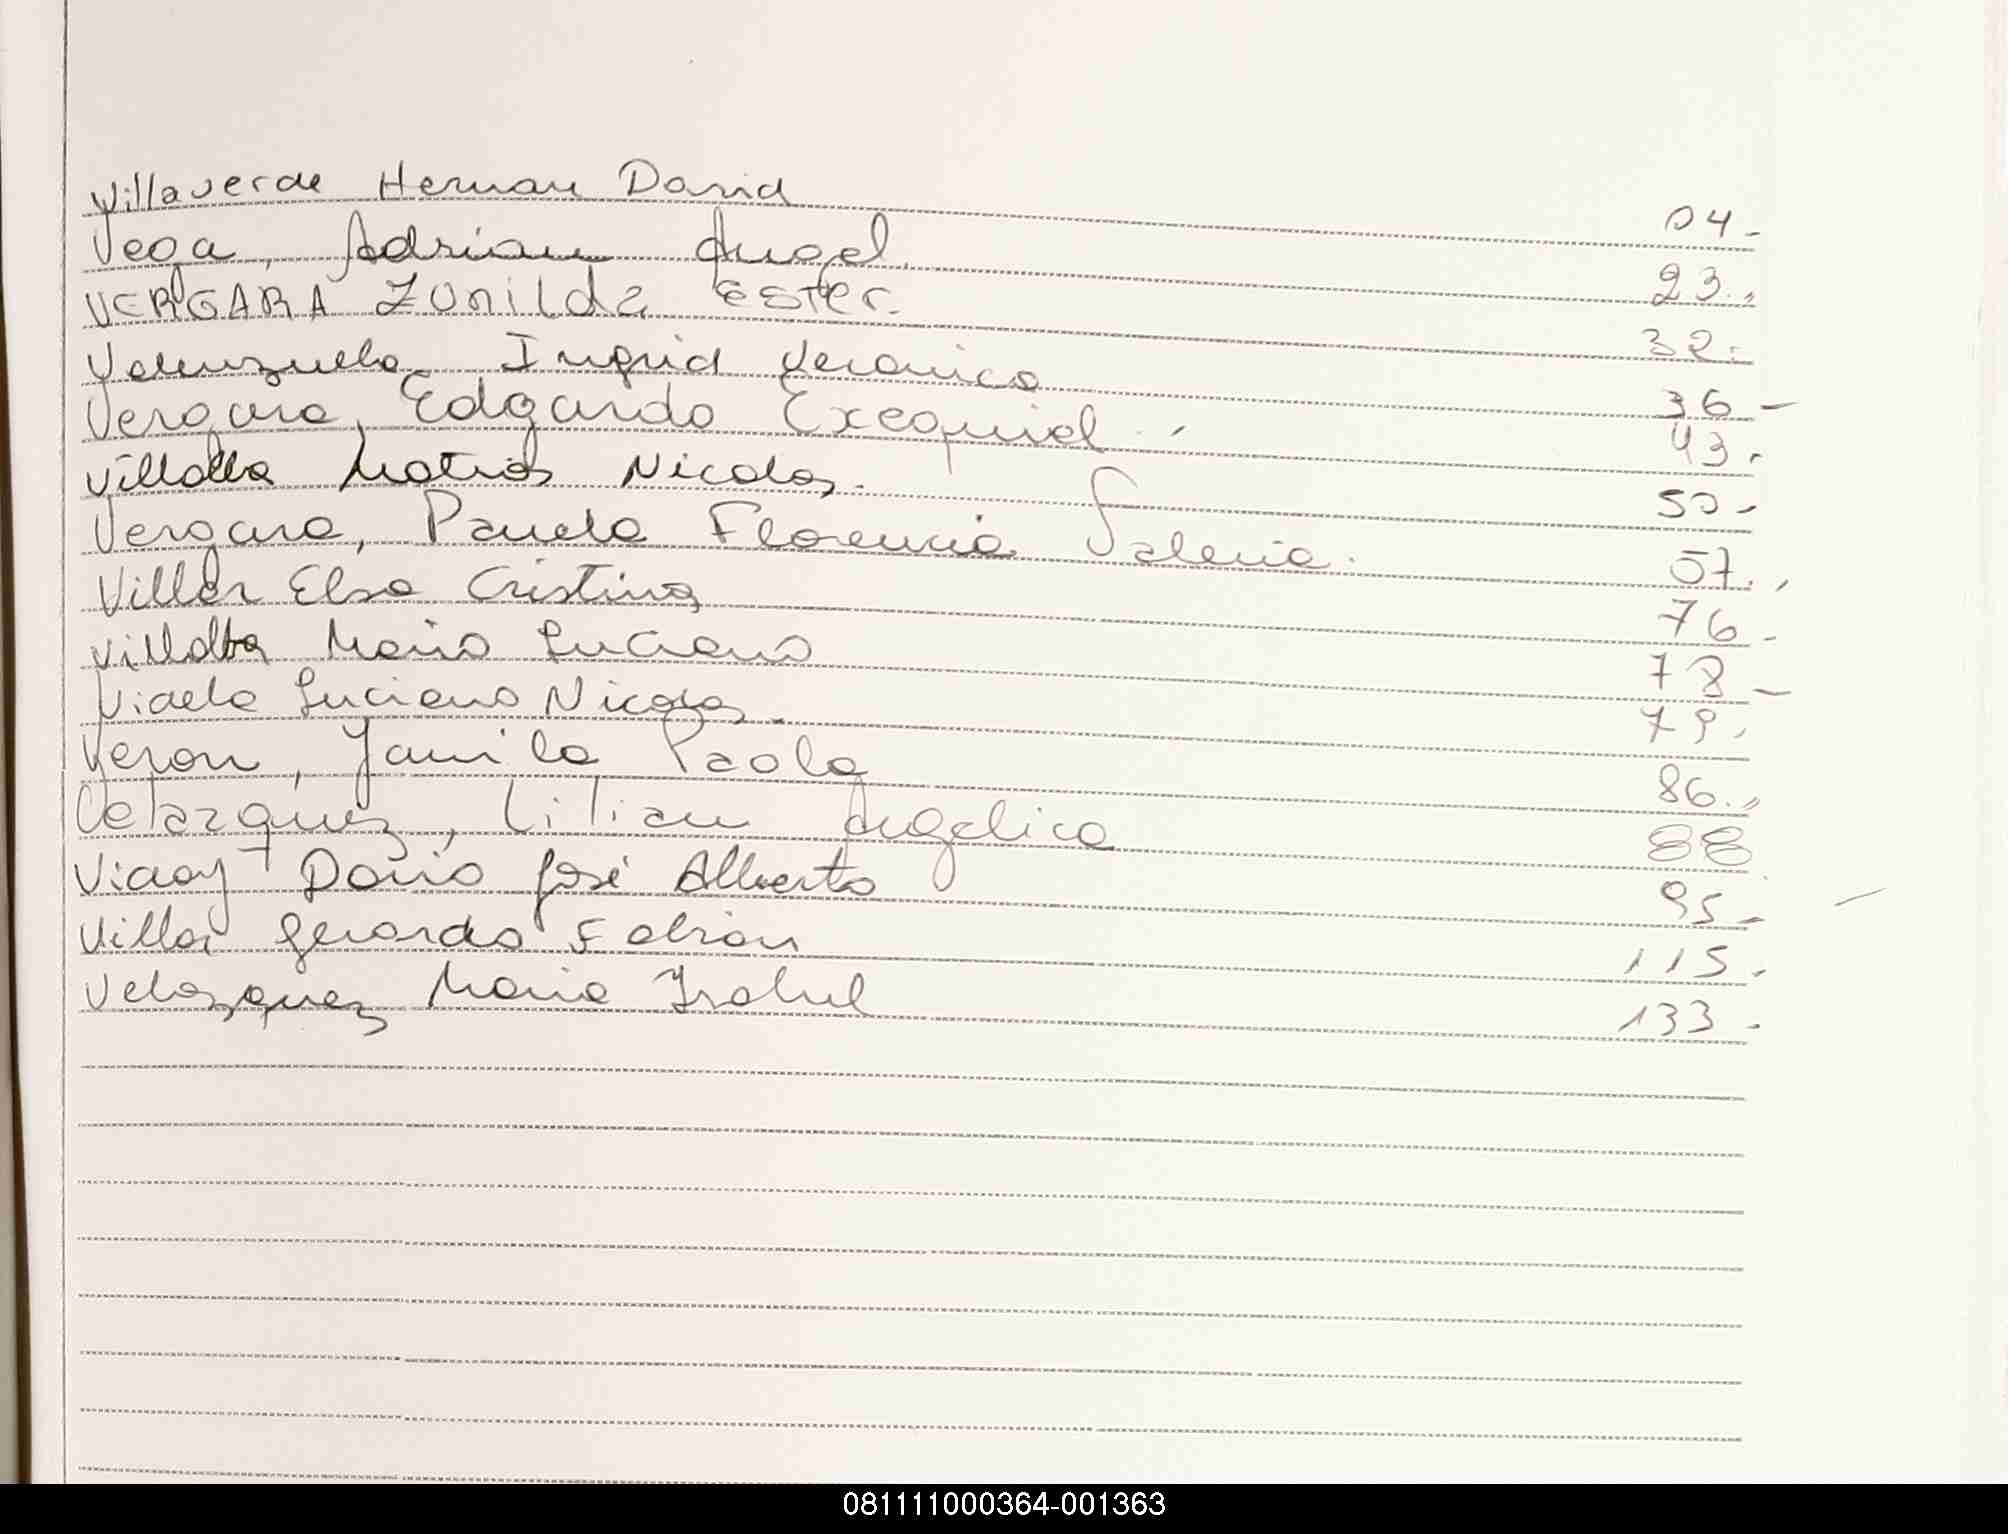 Villaverde Hernan David 04-
Vega, Adrian Angel. 23.,
VERGARA Zunilda Ester. 32.-
Valenzuela Ingrid Veronica 36-
Vergara, Edgardo Exequiel. 43.
Villalba Matias Nicolas. 50-
Vergara, Pamela Florencia Valeria. 57.,
Villar Elsa Cristina 76-
Villalba Mario Luciano 78-
Viaela Luciano Nicolas. 79.
Veron, Yamila Paola 86.,
Velazquez, Lilian Angelica 88
Dario José Alberto 95-
Villar Gerardo Fabian 115.
Velazquez Maria Isabel 133-
081111000364-001363